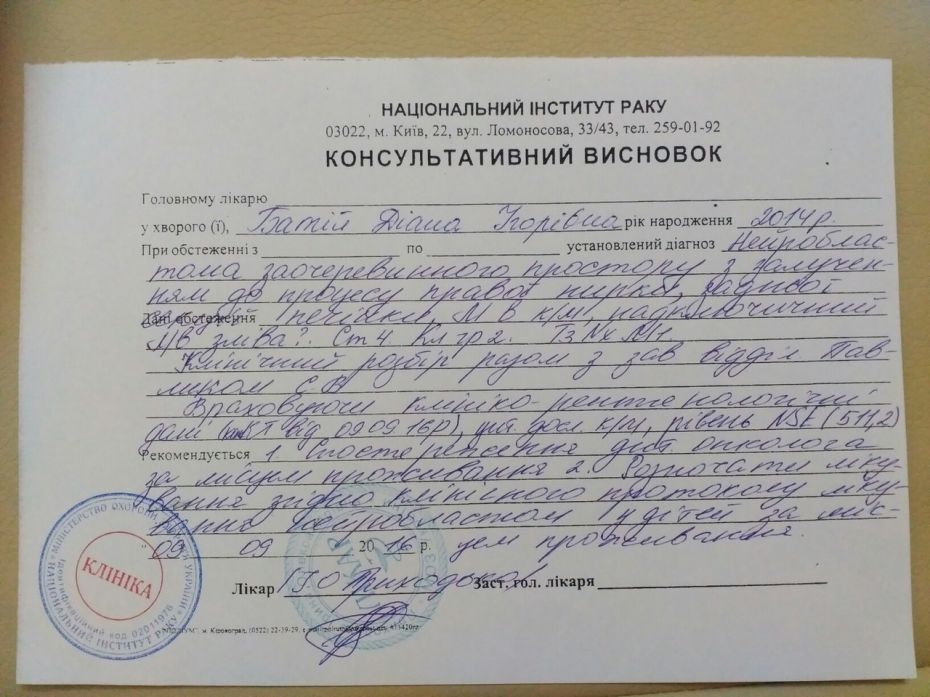 НАЦІОНАЛЬНИЙ ІНСТИТУТ РАКУ
03022, м. Київ, 22, вул. Ломоносова, 33/43, тел. 259-01-92
КОНСУЛЬТАТИВНИЙ ВИСНОВОК
Головному лікарю
у хворого (ї), Батій Діана Ігорівна рік народження 2014р.
При обстеженні з по установлений діагноз Нейроблас-
тома заочеревинного простору з залучен-
ням до процесу правої нирки, задньої
Дані обстеження печінки, М в к/м, наднирничий
М/в зліва?. Ст 4 Кл гр 2. T3 Nx M1.
Клінічний розбір разом з зав відділ. Пав-
ликом С.В
Враховуючи клініко-рентгенологічні
дані (КТ від 09 09 16р), цит. досл. к/м, рівень NSE (511,2)
Рекомендується 1. Спостереження дит. онколога
за місцем проживання 2. Розпочати ліку-
вання згідно клінічного протоколу ліку-
вання нейробластом у дітей за міс-
" 09 09 2016 р. цем проживання.
Лікар Г.О Приходько Заст. гол. лікаря
м. Кіровоград, (0522) 22-39-29,
МІНІСТЕРСТВО ОХОРОНИ УКРАЇНИ
НАЦІОНАЛЬНИЙ ІНСТИТУТ РАКУ
Ідентифікаційний код 02011976
КЛІНІКА